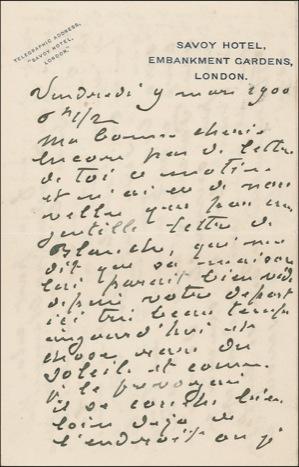 TELEGRAPHIC ADDRESS,
"SAVOY HOTEL,
LONDON."
SAVOY HOTEL,
EMBANKMENT GARDENS,
LONDON.
Vendredi 9 mars 1900
6 h 1/2
Ma bonne chérie
Encore pas de lettre
de toi ce matin
et n'ai eu de nou
velles que par une
gentille lettre de
Blanche, qui me
dit que sa maison
lui parait bien vide
depuis votre depart
ici tres beau temps
aujourd'hui et
chose rare du
soleil et comme
je le prevoyais
il se couche bien
loin deja de
l'endroit ou j'